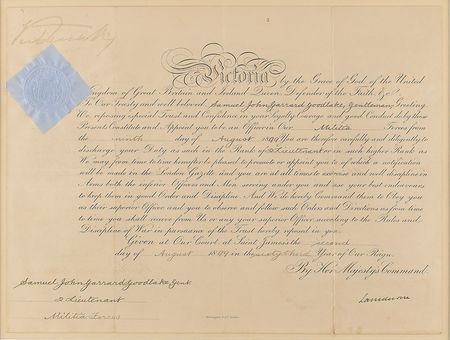 Victoria by the Grace of God, of the United
Kingdom of Great Britain and Ireland Queen, Defender of the Faith, &c.
To Our Trusty and well beloved Samuel John Garrard Goodlake, Gentleman, Greeting.
We, reposing especial Trust and Confidence in your Loyalty, Courage and good Conduct, do by these
Presents Constitute and Appoint you to be an Officer in Our Militia Forces from
the ninth day of August 1899 You are therefore carefully and diligently to
discharge your Duty as such in the Rank of 2 Lieutenant or in such higher Rank as
We may from time to time hereafter be pleased to promote or appoint you to, of which a notification
will be made in the London Gazette and you are at all times to exercise and well discipline in
Arms both the inferior Officers and Men serving under you and use your best endeavours
to keep them in good Order and Discipline. And We do hereby Command them to Obey you
as their superior Officer and you to observe and follow such Orders and Directions as from time
to time you shall receive from Us or any your superior Officer according to the Rules and
Discipline of War in pursuance of the Trust hereby reposed in you.
Given at Our Court at Saint James's the second
day of August 1899 in the sixty third Year of Our Reign
By Her Majesty's Command.
Samuel John Garrard Goodlake, Gent
2 Lieutenant
Militia Forces
Lansdowne